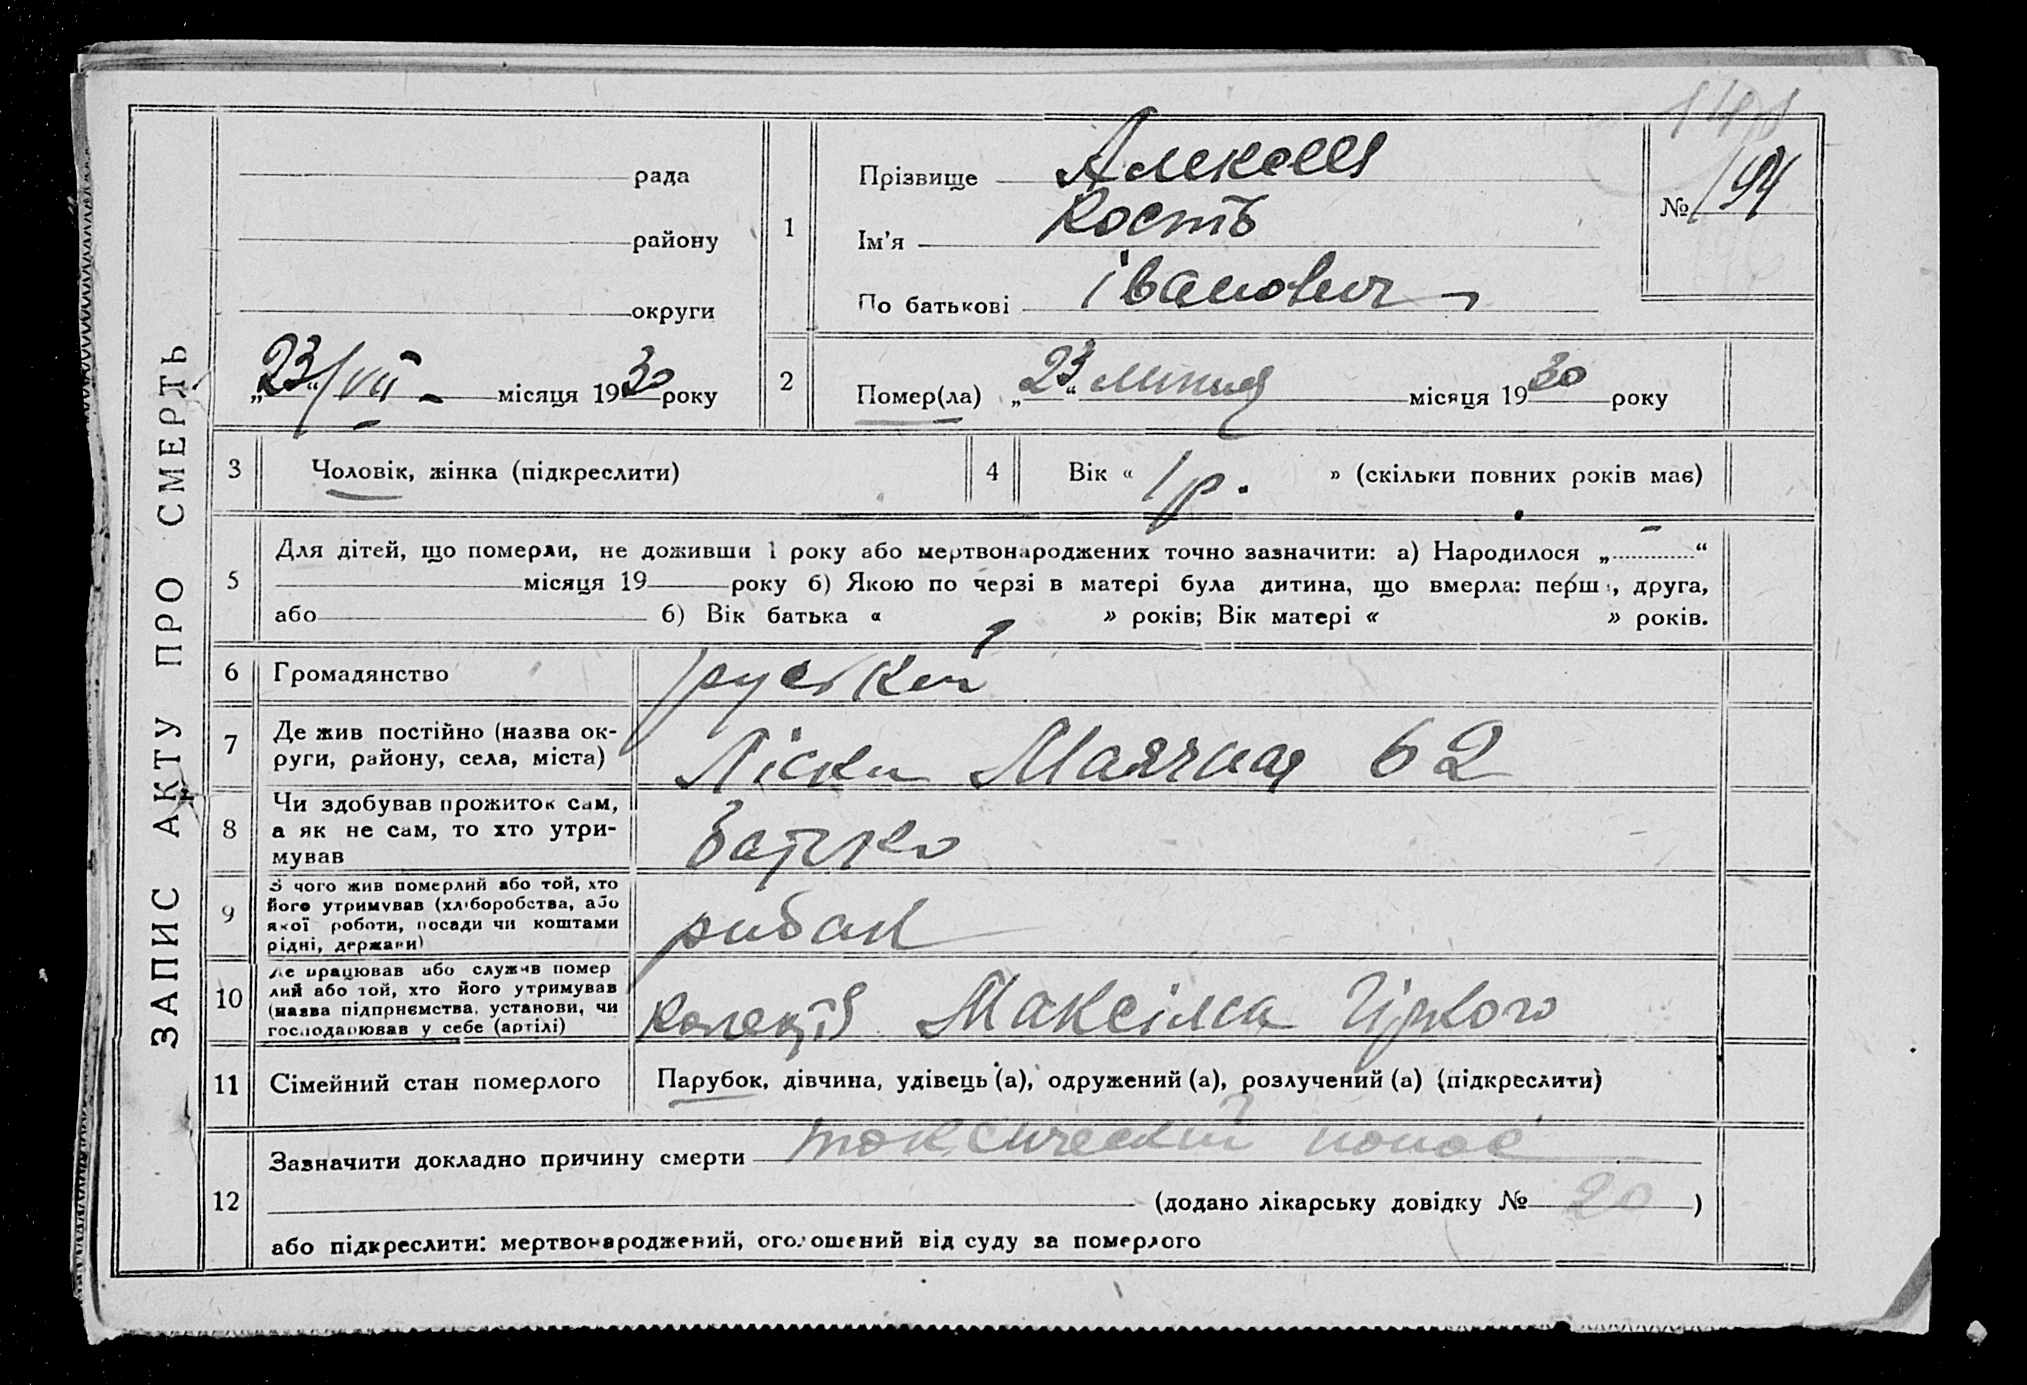 ЗАПИС АКТУ ПРО СМЕРТЬ
рада
району
округи
„23“ VII місяця 1930 року
1
Прізвище
Ім'я Кость
По батькові Іванович
№ 194
2
Помер(ла) „23“ липня місяця 1930 року
3
Чоловік, жінка (підкреслити)
4
Вік « 1 р. » (скільки повних років має)
5
Для дітей, що померли, не доживши 1 року або мертвонароджених точно зазначити: а) Народилося „ - “
місяця 19 року б) Якою по черзі в матері була дитина, що вмерла: перша, друга,
або б) Вік батька « » років; Вік матері « » років.
6
Громадянство руський
7
Де жив постійно (назва ок-
руги, району, села, міста)
Ліски Маячная 62
8
Чи здобував прожиток сам,
а як не сам, то хто утри-
мував
батько
9
З чого жив померлий або той, хто
його утримував (хліборобства, або
якої роботи, посади чи коштами
рідні, держави)
рибак
10
Де працював або служив помер
лий або той, хто його утримував
(назва підприємства, установи, чи
господарював у себе (артілі)
Максіма Гіркого
11
Сімейний стан померлого
Парубок, дівчина, удівець (а), одружений (а), розлучений (а) (підкреслити)
12
Зазначити докладно причину смерти токсический понос
(додано лікарську довідку № 20 )
або підкреслити: мертвонароджений, оголошений від суду за померлого